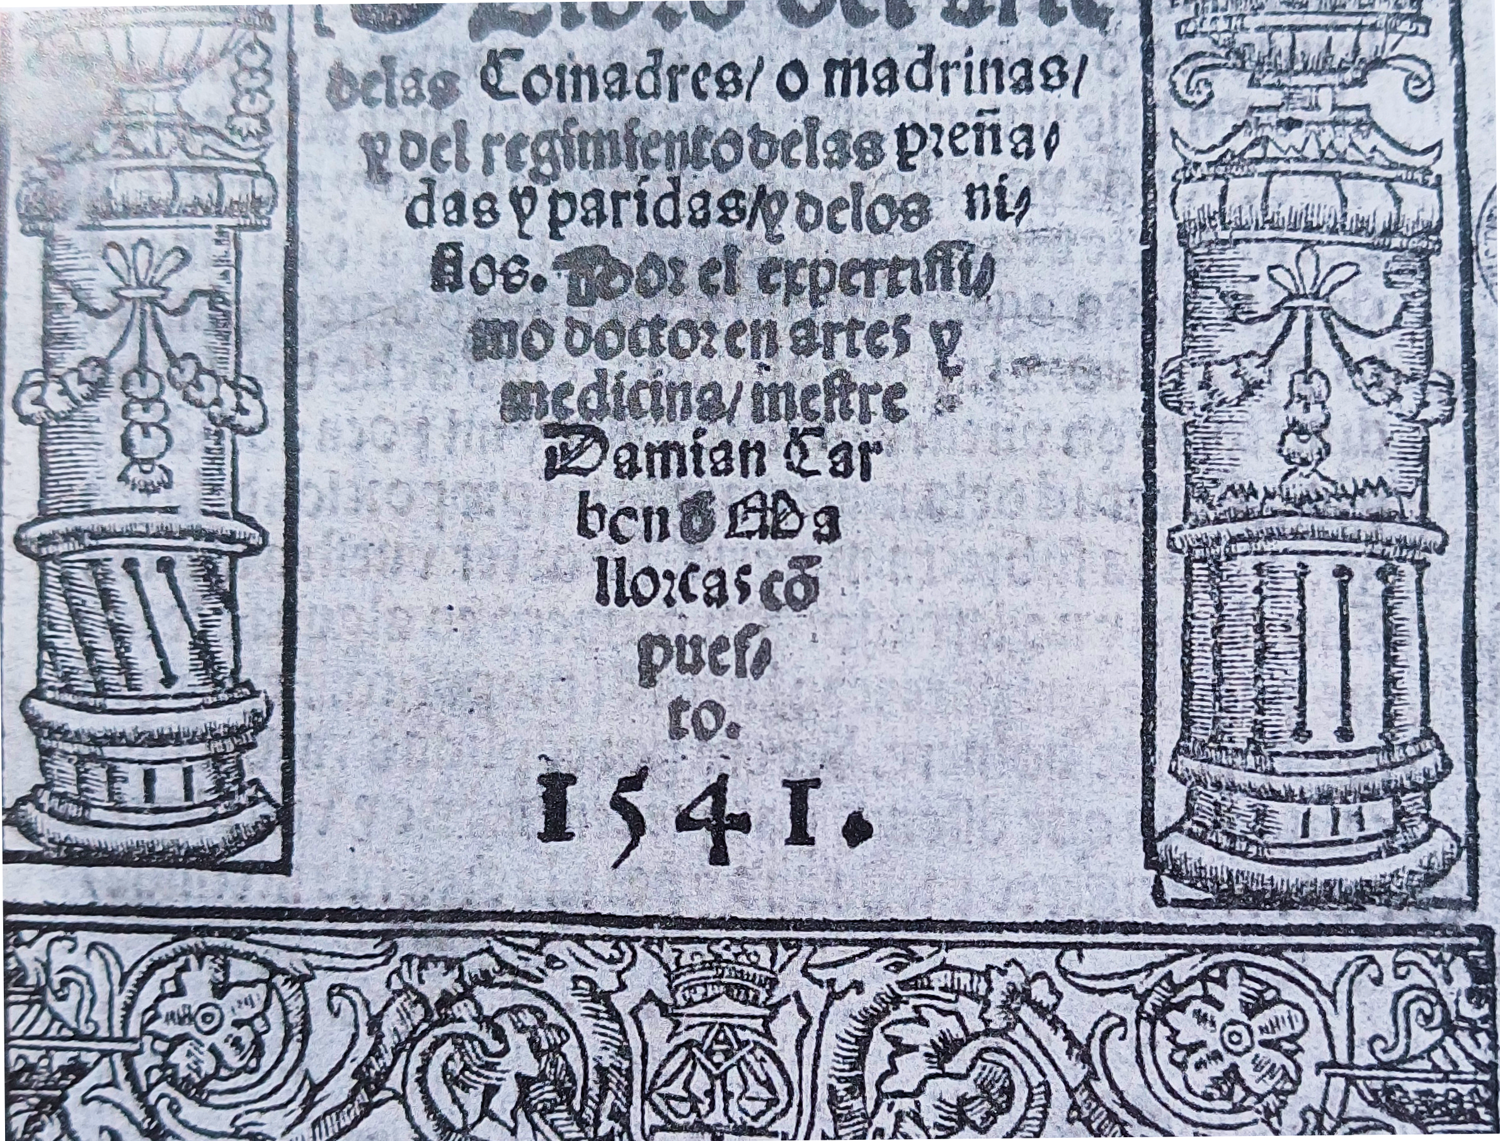 Libro del arte
delas Comadres/ o madrinas/
y del regimiento delas preña/
das y paridas/ y delos ni/
ños. Por el expertissi/
mo doctor en artes y
medicina/ mestre
Damian Car
bon đ Ma
llorcas cõ
pues/
to.
1541.